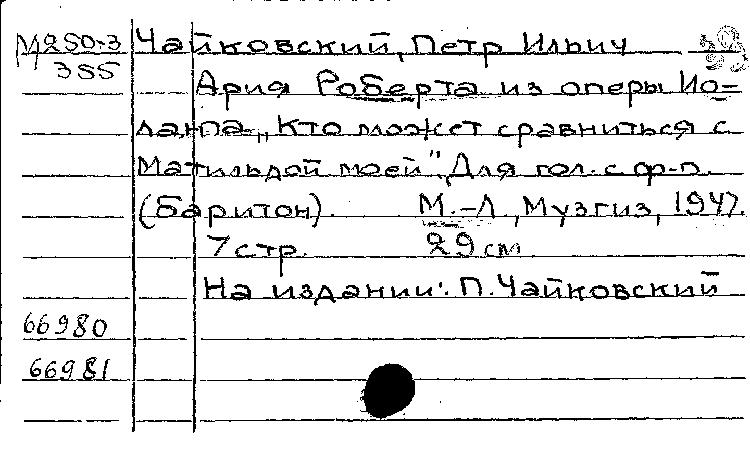 М250-3 Чайковский, Петр Ильич
355 Ария Роберта из оперы Ио=
ланта „Кто может сравниться с
Матильдой моей", Для гол. с ф-п.
(Баритон). М.-Л., Музгиз, 1947.
7 стр. 29 см
На издании: П. Чайковский
66980
66981